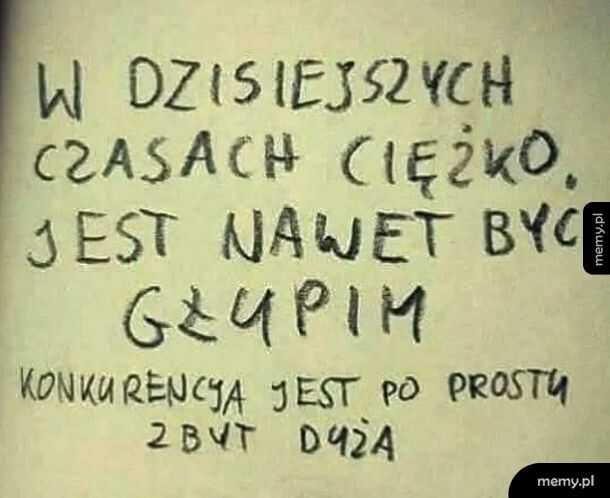 W DZISIEJSZYCH
CZASACH CIĘŻKO.
JEST NAWET BYĆ
GŁUPIM
KONKURENCJA JEST PO PROSTU
ZBYT DUŻA
memy.pl
memy.pl